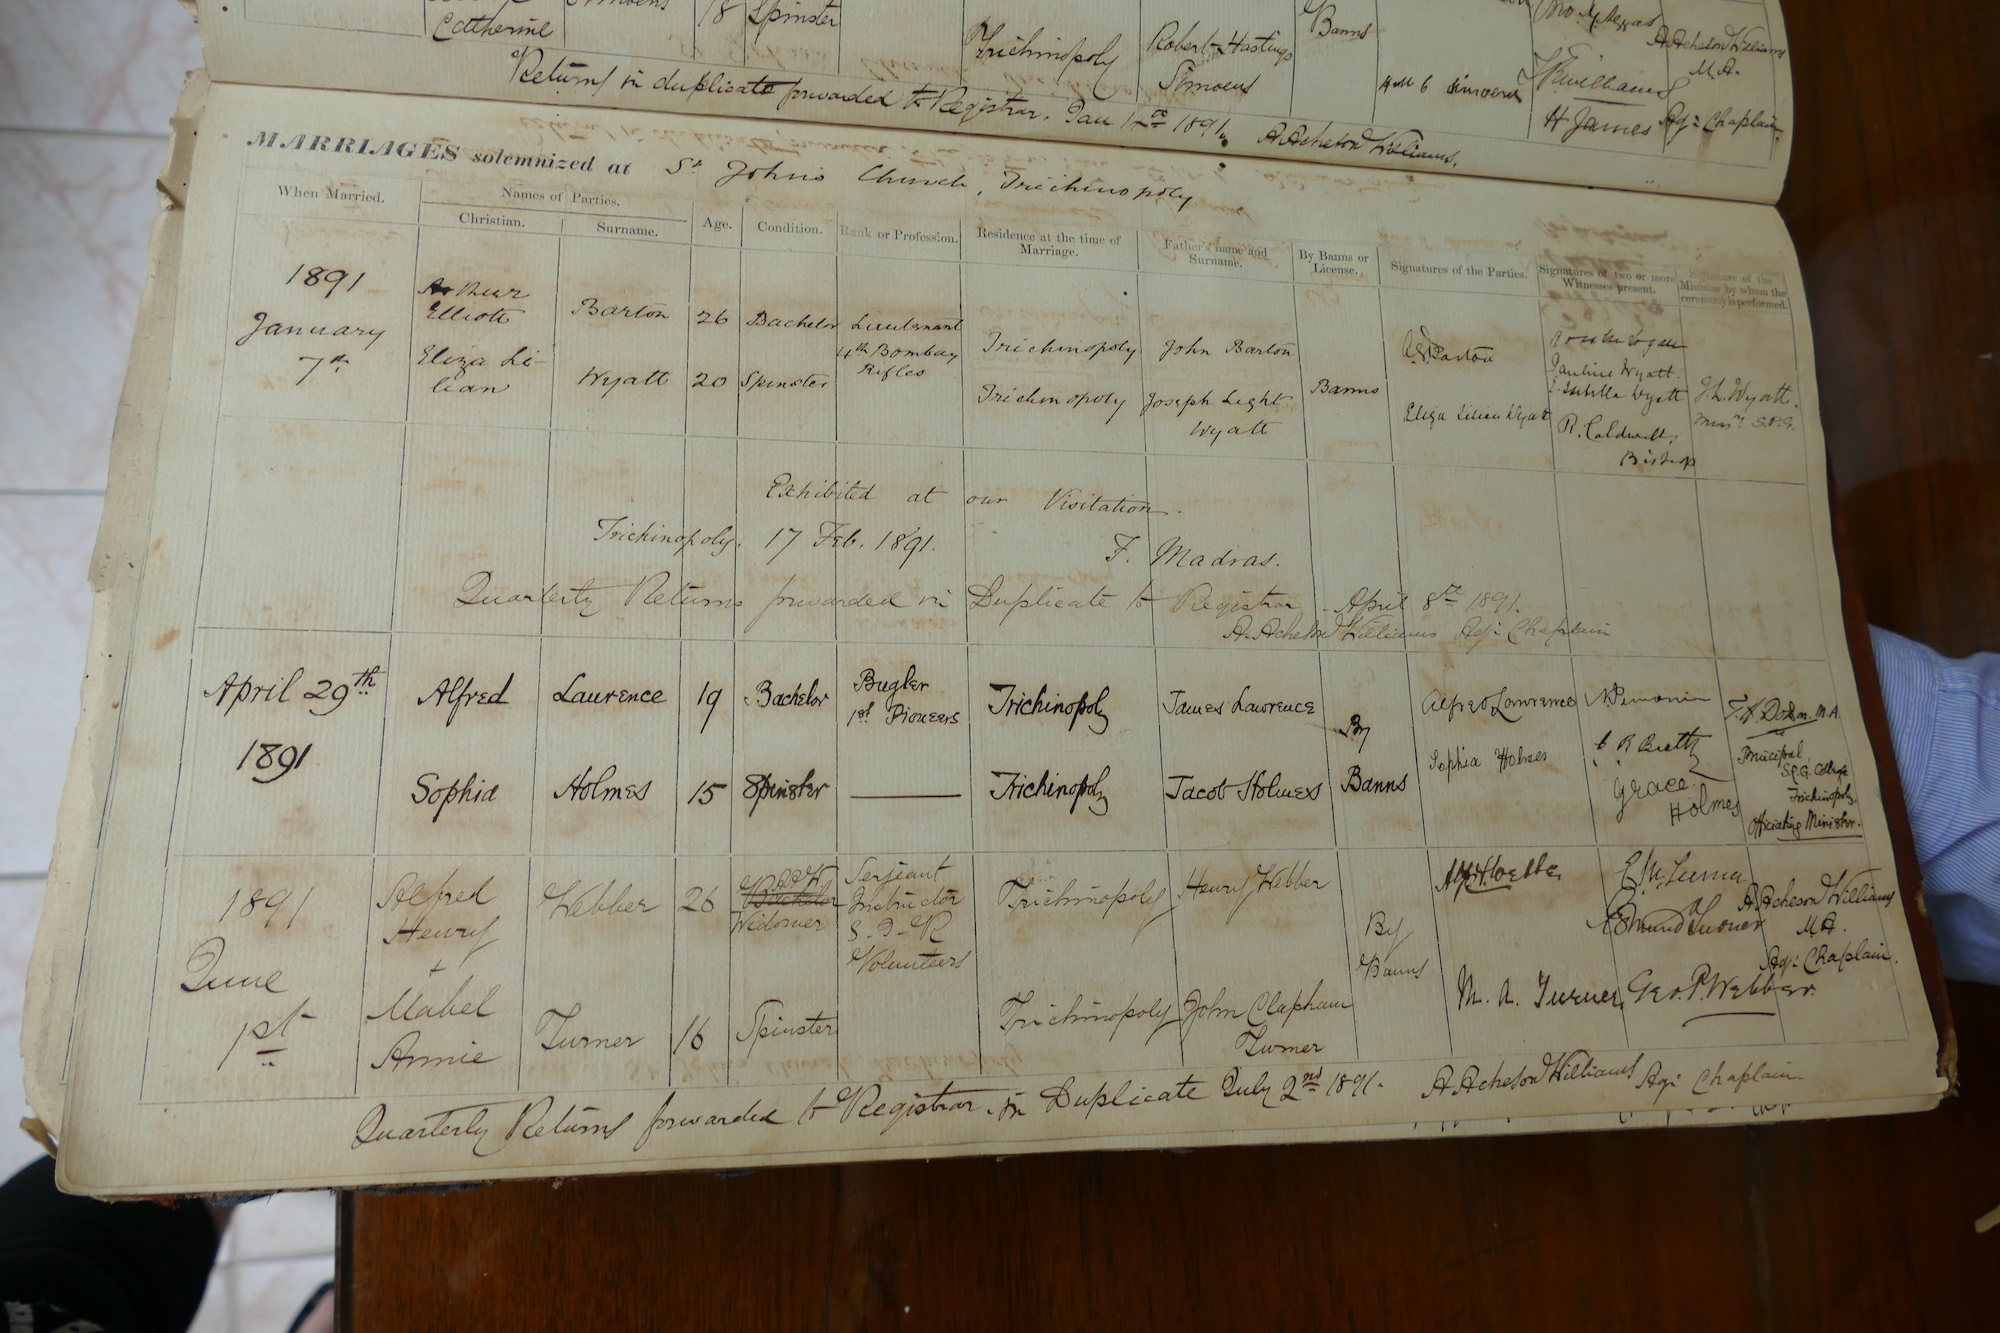 Catherine Simoens 18 Spinster Trichinopoly Robert Hastings Simoens Banns
A Acheson Williams M.A.
H James Ag: Chaplain
Returns in duplicate forwarded to Registrar. Jan 12th 1891. A Acheson Williams.
MARRIAGES solemnized at St Johns Church, Trichinopoly
When Married. Names of Parties. Age. Condition. Rank or Profession. Residence at the time of Marriage. Father's name and Surname. By Banns or License. Signatures of the Parties. Signatures of two or more Witnesses present. Signature of the Minister by whom the ceremony is performed.
Christian. Surname.
1891 January 7th
Arthur Elliott Barton 26 Bachelor Lieutenant 4th Bombay Rifles Trichinopoly John Barton
Eliza Lilian Wyatt 20 Spinster Trichinopoly Joseph Light Wyatt Banns
A E Barton
Eliza Lilian Wyatt
Pauline Wyatt.
Isabella Wyatt
R. Caldwell, Bishop
J. L. Wyatt. Missy S.P.G.
Exhibited at our Visitation.
Trichinopoly. 17 Feb. 1891. F. Madras.
Quarterly Returns forwarded in Duplicate to Registrar. April 8th 1891.
A. Acheson Williams Ag: Chaplain
April 29th 1891
Alfred Laurence 19 Bachelor Bugler 1st Pioneers Trichinopoly James Lawrence
Sophia Holmes 15 Spinster Trichinopoly Jacob Holmes
By Banns
Alfred Lawrence
Sophia Holmes
Grace Holmes
Principal, S.P.G. College Trichinopoly. Officiating Minister.
1891 June 1st
Alfred Henry + Webber 26 Bachelor Widower Serjeant Instructor S-I-R Volunteers Trichinopoly Henry Webber
Mabel Annie Turner 16 Spinster Trichinopoly John Clapham Turner
By Banns
Alf. H. Webber
M. A. Turner
Edmund Turner
Geo. P. Webber.
A. Acheson Williams M.A. Ag: Chaplain.
Quarterly Returns forwarded to Registrar in Duplicate July 2nd 1891. A Acheson Williams Ag: Chaplain